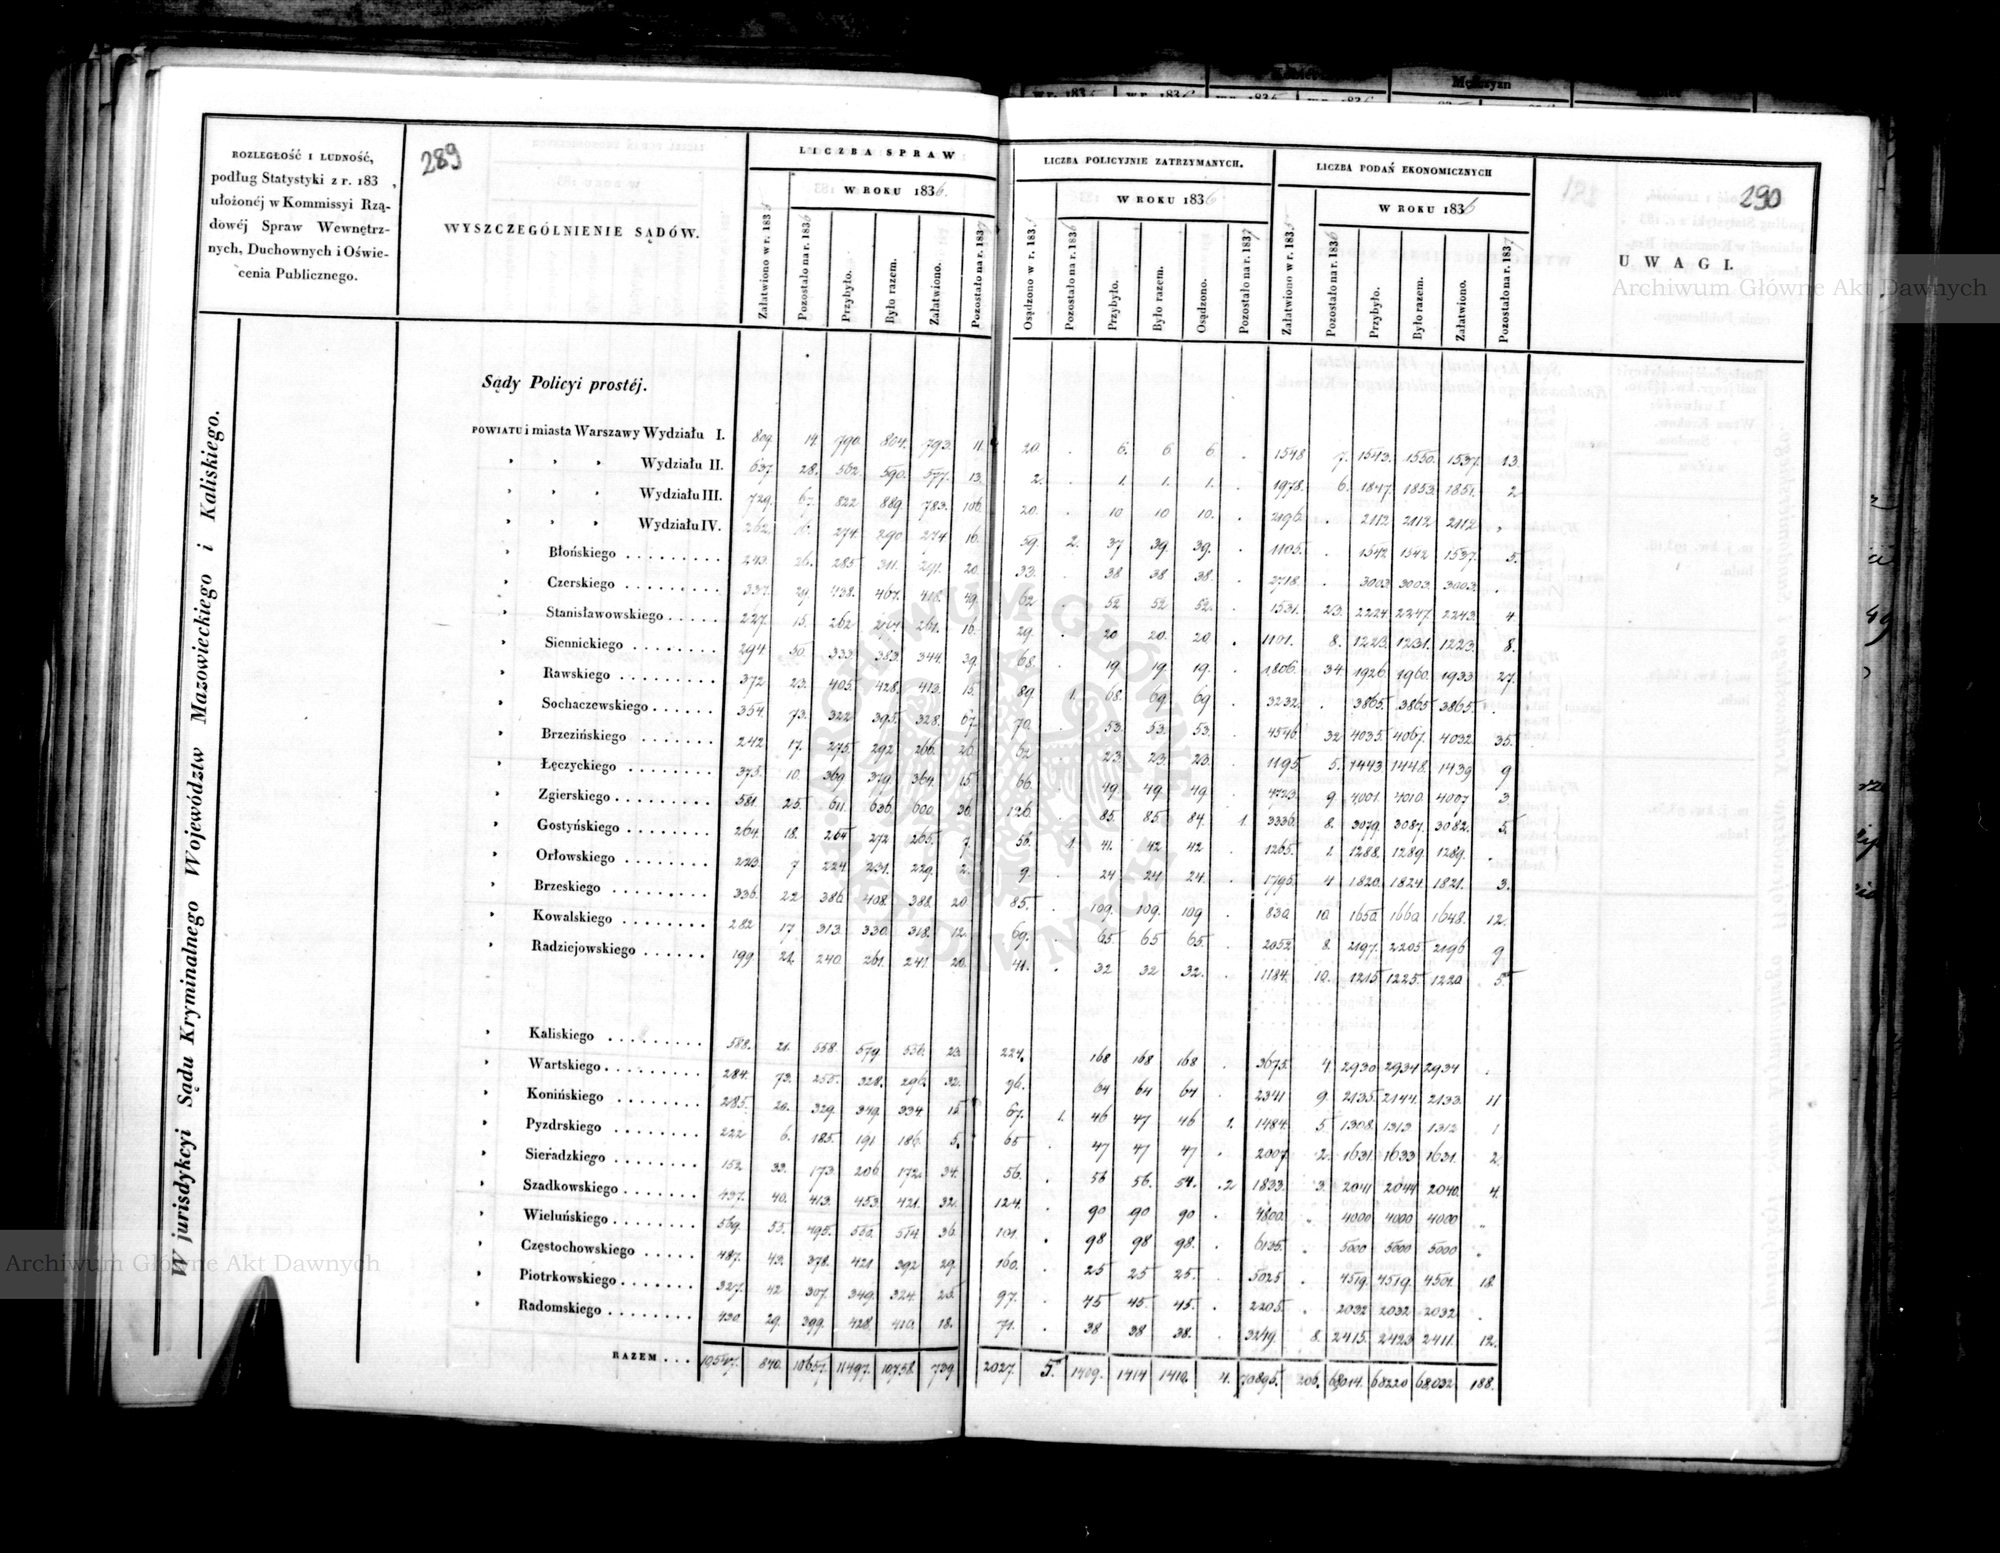 289
290
ROZLEGŁOŚĆ I LUDNOŚĆ,
podług Statystyki z r. 183 ,
ułożonéj w Kommissyi Rzą-
dowéj Spraw Wewnętrz-
nych, Duchownych i Oświe-
cenia Publicznego.
WYSZCZEGÓLNIENIE SĄDÓW.
LICZBA SPRAW
W ROKU 1836.
Załatwiono w r. 1835
Pozostało na r. 1836
Przybyło.
Było razem.
Załatwiono.
Pozostało na r. 1837
LICZBA POLICYJNIE ZATRZYMANYCH.
W ROKU 1836
Osądzono w r. 1835
Pozostało na r. 1836
Przybyło.
Było razem.
Osądzono.
Pozostało na r. 1837
LICZBA PODAŃ EKONOMICZNYCH
W ROKU 1836
Załatwiono w r. 1835
Pozostało na r. 1836
Przybyło.
Było razem.
Załatwiono.
Pozostało na r. 1837
UWAGI.
W jurisdykcyi Sądu Kryminalnego Województw Mazowieckiego i Kaliskiego.
Sądy Policyi prostéj.
POWIATU i miasta Warszawy Wydziału I. 809. 14. 790. 804. 793. 11. 20. . 6. 6 6. . 1548 7. 1543. 1550. 1537. 13.
" " " Wydziału II. 637. 28. 562. 590. 577. 13. 2. . 1. 1. 1. . 1978. 6. 1847. 1853. 1851. 2
" " " Wydziału III. 729. 67. 822 889. 783. 106. 20. . 10 10 10. . 2196. . 2112 2112 2112 .
" " " Wydziału IV. 262. 16. 274. 290 274 16. 59. 2. 37 39. 39. . 1105. . 1542 1542 1537. 5.
" Błońskiego . . . . . . . . 243. 26. 285 311. 291. 20. 33. . 38 38 38. . 2718. . 3003 3003. 3003. .
" Czerskiego . . . . . . . . 337. 29. 438. 467. 418. 49. 62 . 52 52 52. . 1531. 23. 2224. 2247. 2243. 4.
" Stanisławowskiego . . . . . 227. 15. 262 277. 261. 16. 29. . 20 20. 20 . 1191. 8. 1223. 1231. 1223. 8.
" Siennickiego . . . . . . . . 294. 50. 333. 383. 344. 39. 68. . 19. 19. 19. . 1806. 34. 1926. 1960. 1933. 27.
" Rawskiego . . . . . . . . 372 23. 405. 428. 413. 15. 89. 1. 68. 69. 69 . 3232. . 3865. 3865 3865. .
" Sochaczewskiego . . . . . . 354. 73. 322 395. 328. 67. 70. . 53. 53. 53. . 4546. 32 4035. 4067. 4032. 35.
" Brzezińskiego . . . . . . . 242 17. 275. 292 266. 26. 62. . 23. 23. 23. . 1195 5. 1443 1448. 1439 9
" Łęczyckiego . . . . . . . . 375. 10. 369 379. 364. 15. 66. . 49. 49. 49 . 4723. 9 4001. 4010. 4007 3.
" Zgierskiego . . . . . . . . 581. 25. 611. 636. 600. 36. 126. . 85. 85. 84. 1. 3336. 8. 3079. 3087. 3082. 5.
" Gostyńskiego . . . . . . . 264. 18. 254 272 265. 7. 56. 1. 41. 42 42 . 1265. 1. 1288. 1289. 1289. .
" Orłowskiego . . . . . . . . 223. 7 224 231. 229. 2. 9. . 24 24 24. . 1795. 4 1820. 1824. 1821. 3.
" Brzeskiego . . . . . . . . 336. 22 386. 408. 388. 20 85. . 109. 109. 109 . 830. 10. 1650. 1660. 1648. 12.
" Kowalskiego . . . . . . . 282 17 313. 330. 318. 12. 69. . 65 65 65. . 2052. 8. 2197. 2205. 2196 9
" Radziejowskiego . . . . . . 199 21. 240. 261. 241 20. 41. . 32 32 32. . 1184. 10. 1215 1225. 1220. 5.
" Kaliskiego . . . . . . . . . 588. 21. 558. 579. 556. 23. 224. . 168 168 168 . 3675. 4 2930 2934 2934 .
" Wartskiego . . . . . . . . . 284. 73. 255. 328. 296. 32. 96. . 64 64 64. . 2341 9. 2135. 2144. 2133. 11
" Konińskiego . . . . . . . . 285. 20. 329. 349. 334. 15. 67. 1. 46 47 46 1. 1484. 5. 1308. 1313 1312 1
" Pyzdrskiego . . . . . . . . 222 6. 185. 191 186. 5. 65 . 47 47 47 . 2007. 2. 1631 1633 1631. 2.
" Sieradzkiego . . . . . . . . 152. 33. 173. 206. 172. 34. 56. . 56 56. 54. .2 1833. 3. 2041 2044 2040. 4.
" Szadkowskiego . . . . . . . 437. 40. 413. 453. 421. 32. 124. . 90 90 90 . 4800. " 4000 4000 4000 "
" Wieluńskiego . . . . . . . . 569. 55. 495. 550. 514. 36. 101. . 98 98 98. . 6135. " 5000 5000 5000 "
" Częstochowskiego . . . . . . 487. 43. 378. 421 392 29. 160. . 25 25 25. . 5025. . 4519. 4519. 4501. 18.
" Piotrkowskiego . . . . . . . 327. 42 307. 349. 324. 25. 97. . 45 45. 45. . 2205. . 2032 2032 2032 .
" Radomskiego . . . . . . . . 430. 29. 399. 428. 410. 18. 71. . 38 38 38. . 3249. 8. 2415. 2423 2411. 12.
RAZEM . . . 10,547. 840. 10657. 11497. 10,758. 739 2027. 5. 1409. 1414 1410. 4. 70895. 206. 68,014. 68220 68,032 188.
Archiwum Główne Akt Dawnych
Archiwum Główne Akt Dawnych
ARCHIWUM GŁÓWNE AKT DAWNYCH